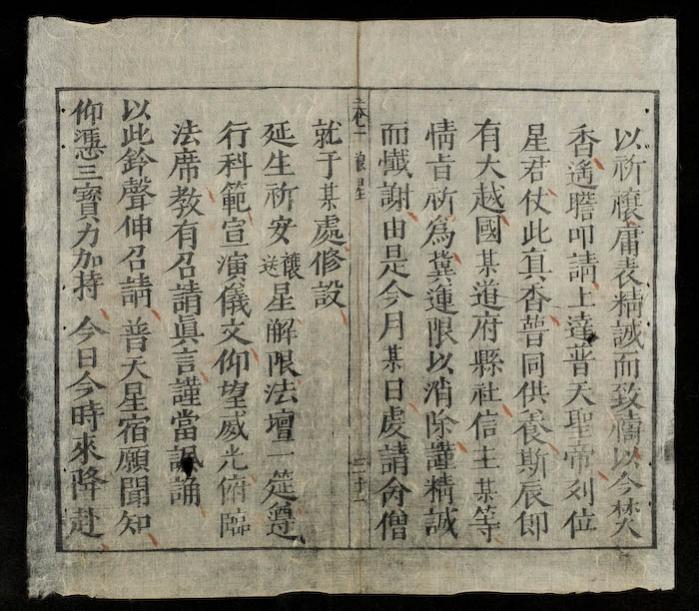 以祈禳庸表精誠而致禱以今焚
香遙瞻叩請上達普天聖帝列位
星君仗此真香普同供養斯辰卽
有大越國某道府縣社信主某等
情旨祈爲冀運限以消除謹精誠
而懺謝由是今月某日虔請禽僧
卷一 禳星 二十一
就于某處修設
延生祈安禳送星解限法壇一筵遵
行科範宣演儀文仰望威光俯臨
法席教有召請眞言謹當諷誦
以此鈴聲伸召請普天星宿願聞知
仰憑三寶力加持今日今時來降赴